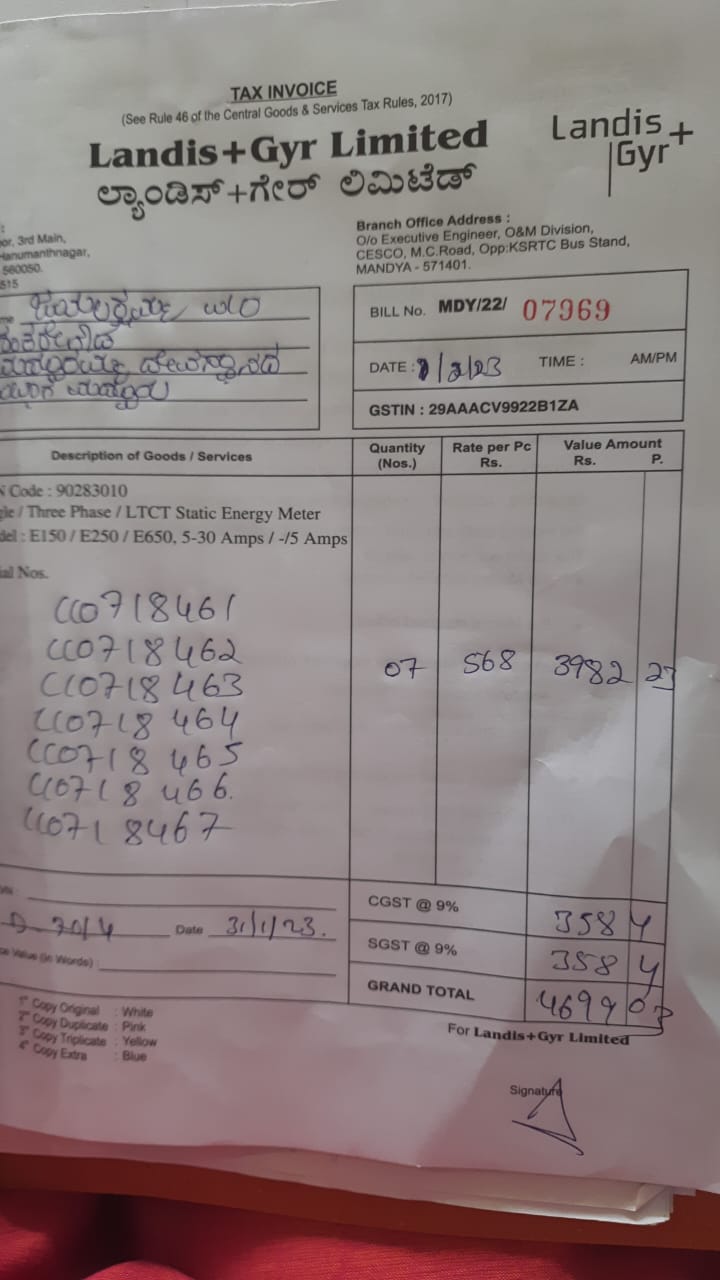 TAX INVOICE
(See Rule 46 of the Central Goods & Services Tax Rules, 2017)
Landis+Gyr Limited
ಲ್ಯಾಂಡಿಸ್+ಗೇರ್ ಲಿಮಿಟೆಡ್
Landis
Gyr+
or, 3rd Main,
Hanumanthnagar,
560050.
515
Branch Office Address :
O/o Executive Engineer, O&M Division,
CESCO, M.C.Road, Opp:KSRTC Bus Stand,
MANDYA - 571401.
BILL No. MDY/22/ 07969
DATE : /2/23 TIME : AM/PM
GSTIN : 29AAACV9922B1ZA
Description of Goods / Services Quantity (Nos.) Rate per Pc Rs. Value Amount Rs. P.
Code : 90283010
/ Three Phase / LTCT Static Energy Meter
: E150 / E250 / E650, 5-30 Amps / -/5 Amps
Nos.
CC0718461
CC0718462
CC0718463
CC0718464
CC0718465
CC0718466
CC0718467
07 568 3982 27
CGST @ 9% 358 4
SGST @ 9% 358 4
GRAND TOTAL 4699 03
Date 31/1/23.
Value (in Words) :
1st Copy Original : White
2nd Copy Duplicate : Pink
3rd Copy Triplicate : Yellow
4th Copy Extra : Blue
For Landis+Gyr Limited
Signature